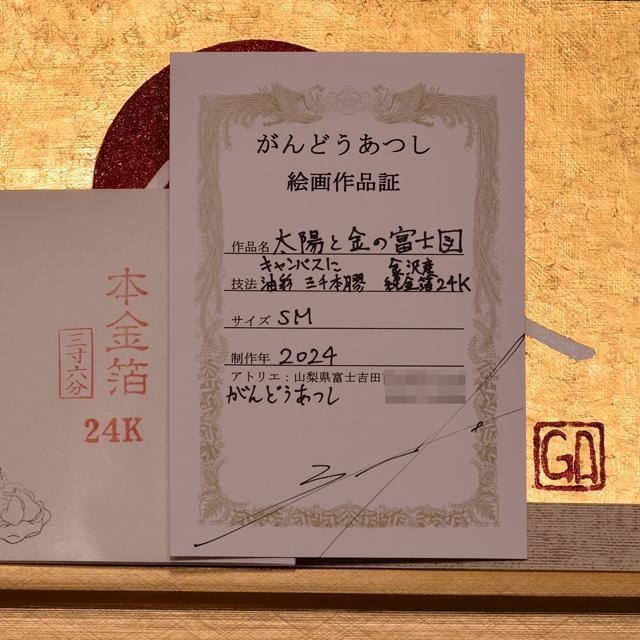 がんどうあつし
絵画作品証
作品名 太陽と金の富士図
キャンバスに 金沢産
技法 油彩 三千本膠 純金箔24K
サイズ SM
制作年 2024
アトリエ：山梨県富士吉田市
がんどうあつし
本金箔
三寸六分
24K
GA